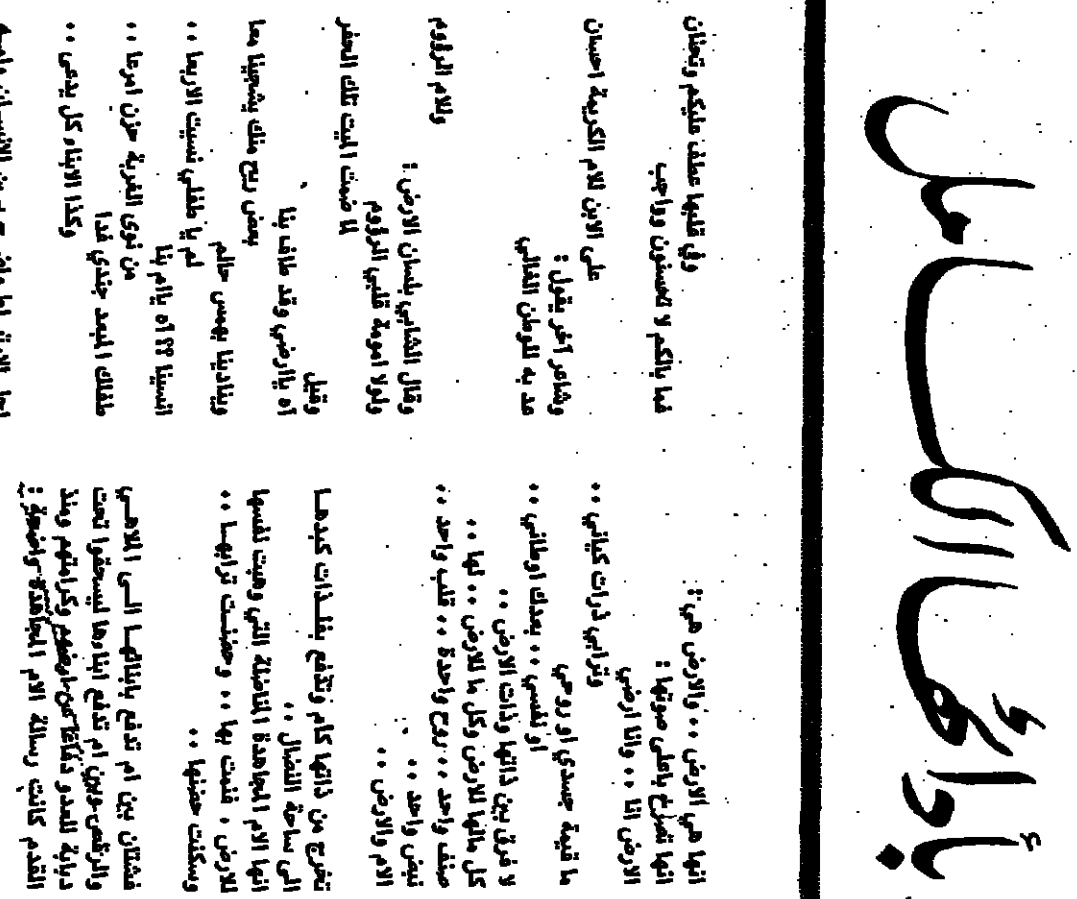 الكامل
انها هي الارض ٠٠ والارض هي :
انها تصرخ باعلى صوتها :
الارض انا ٠٠ وانا ارضي
وترابي ذرات كياني ٠٠
ما قيمة جسدي او روحي
او نفسي ٠٠ بعدك اوطاني ٠٠
لا فرق بين ذاتها وذات الارض ٠٠
كل مالها للارض وكل ما للارض ٠٠ لها ٠٠
صنف واحد ٠٠ روح واحدة ٠٠ قلب واحد ٠٠
نبض واحد ٠٠
الام والارض ٠٠
تخرج من ذاتها كام وتدفع بفلذات كبدها
الى ساحة النضال ٠٠
انها الام المجاهدة المناضلة التي وهبت نفسها
للارض ، فنمت بها ٠٠ وحضنت ترابها ٠٠
وسكنت حضنها ٠٠
فشتان بين ام تدفع بابنائها الى الملاهي
والرقص وبين ام تدفع ابناءها ليسحقوا تحت
دبابة العدو دفاعا عن ارضهم وكرامتهم ومنذ
القدم كانت رسالة الام المجاهدة واضحة :
وفي قلبها عطف عليكم وتحنان
فما بالكم لا تحسنون وواجب
على الابن للام الكريمة احسان
وشاعر آخر يقول :
عد به للوطن الغالي
وللام الرؤوم
وقال الشابي بلسان الارض :
ولولا امومة قلبي الرؤوم
لما ضمت الميت تلك الحفر
وقيل
آه ياارضي وقد طاف بنا
بعض ريح منك يشجينا معا
وينادينا بهمس حالم
لم يا طفلي نسيت الاربعا ٠٠
انسينا ؟؟ آه ياام بنا
من نوى الغربة حزن امرعا ٠٠
طفلك المبعد جندي غدا
وكذا الابناء كل يدعى ٠٠